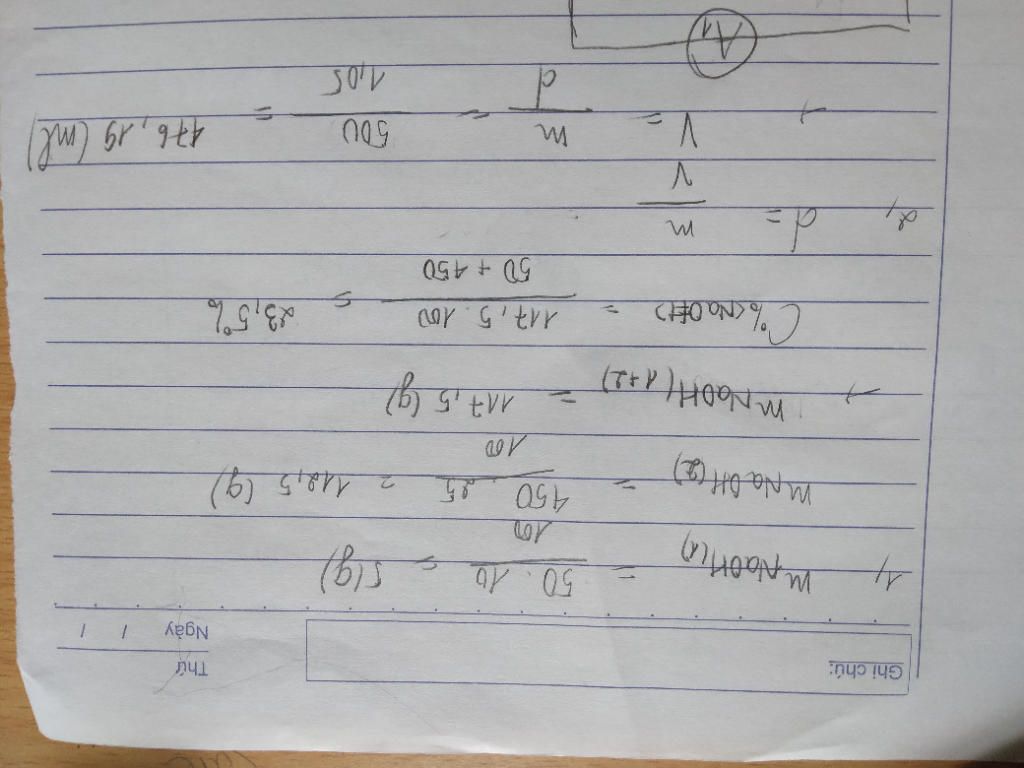 Ghi chú:
Thứ
Ngày / /
1, mNaOH(1) = 50 . 10 / 100 = 5(g)
mNaOH(2) = 450 . 25 / 100 = 112,5 (g)
→ mNaOH(1+2) = 117,5 (g)
C%(NaOH) = 117,5 . 100 / 50 + 450 = 23,5%
2, d = m / V
→ V = m / d = 500 / 1,05 = 476,19 (ml)
A1